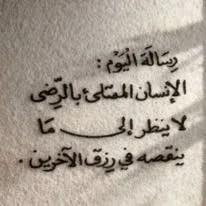 رِسَالَة الْيَوْم :
الإنسان الممتلئ بالرِّضى
لا ينظر إلى مَا
ينقصه في رزق الآخرين .